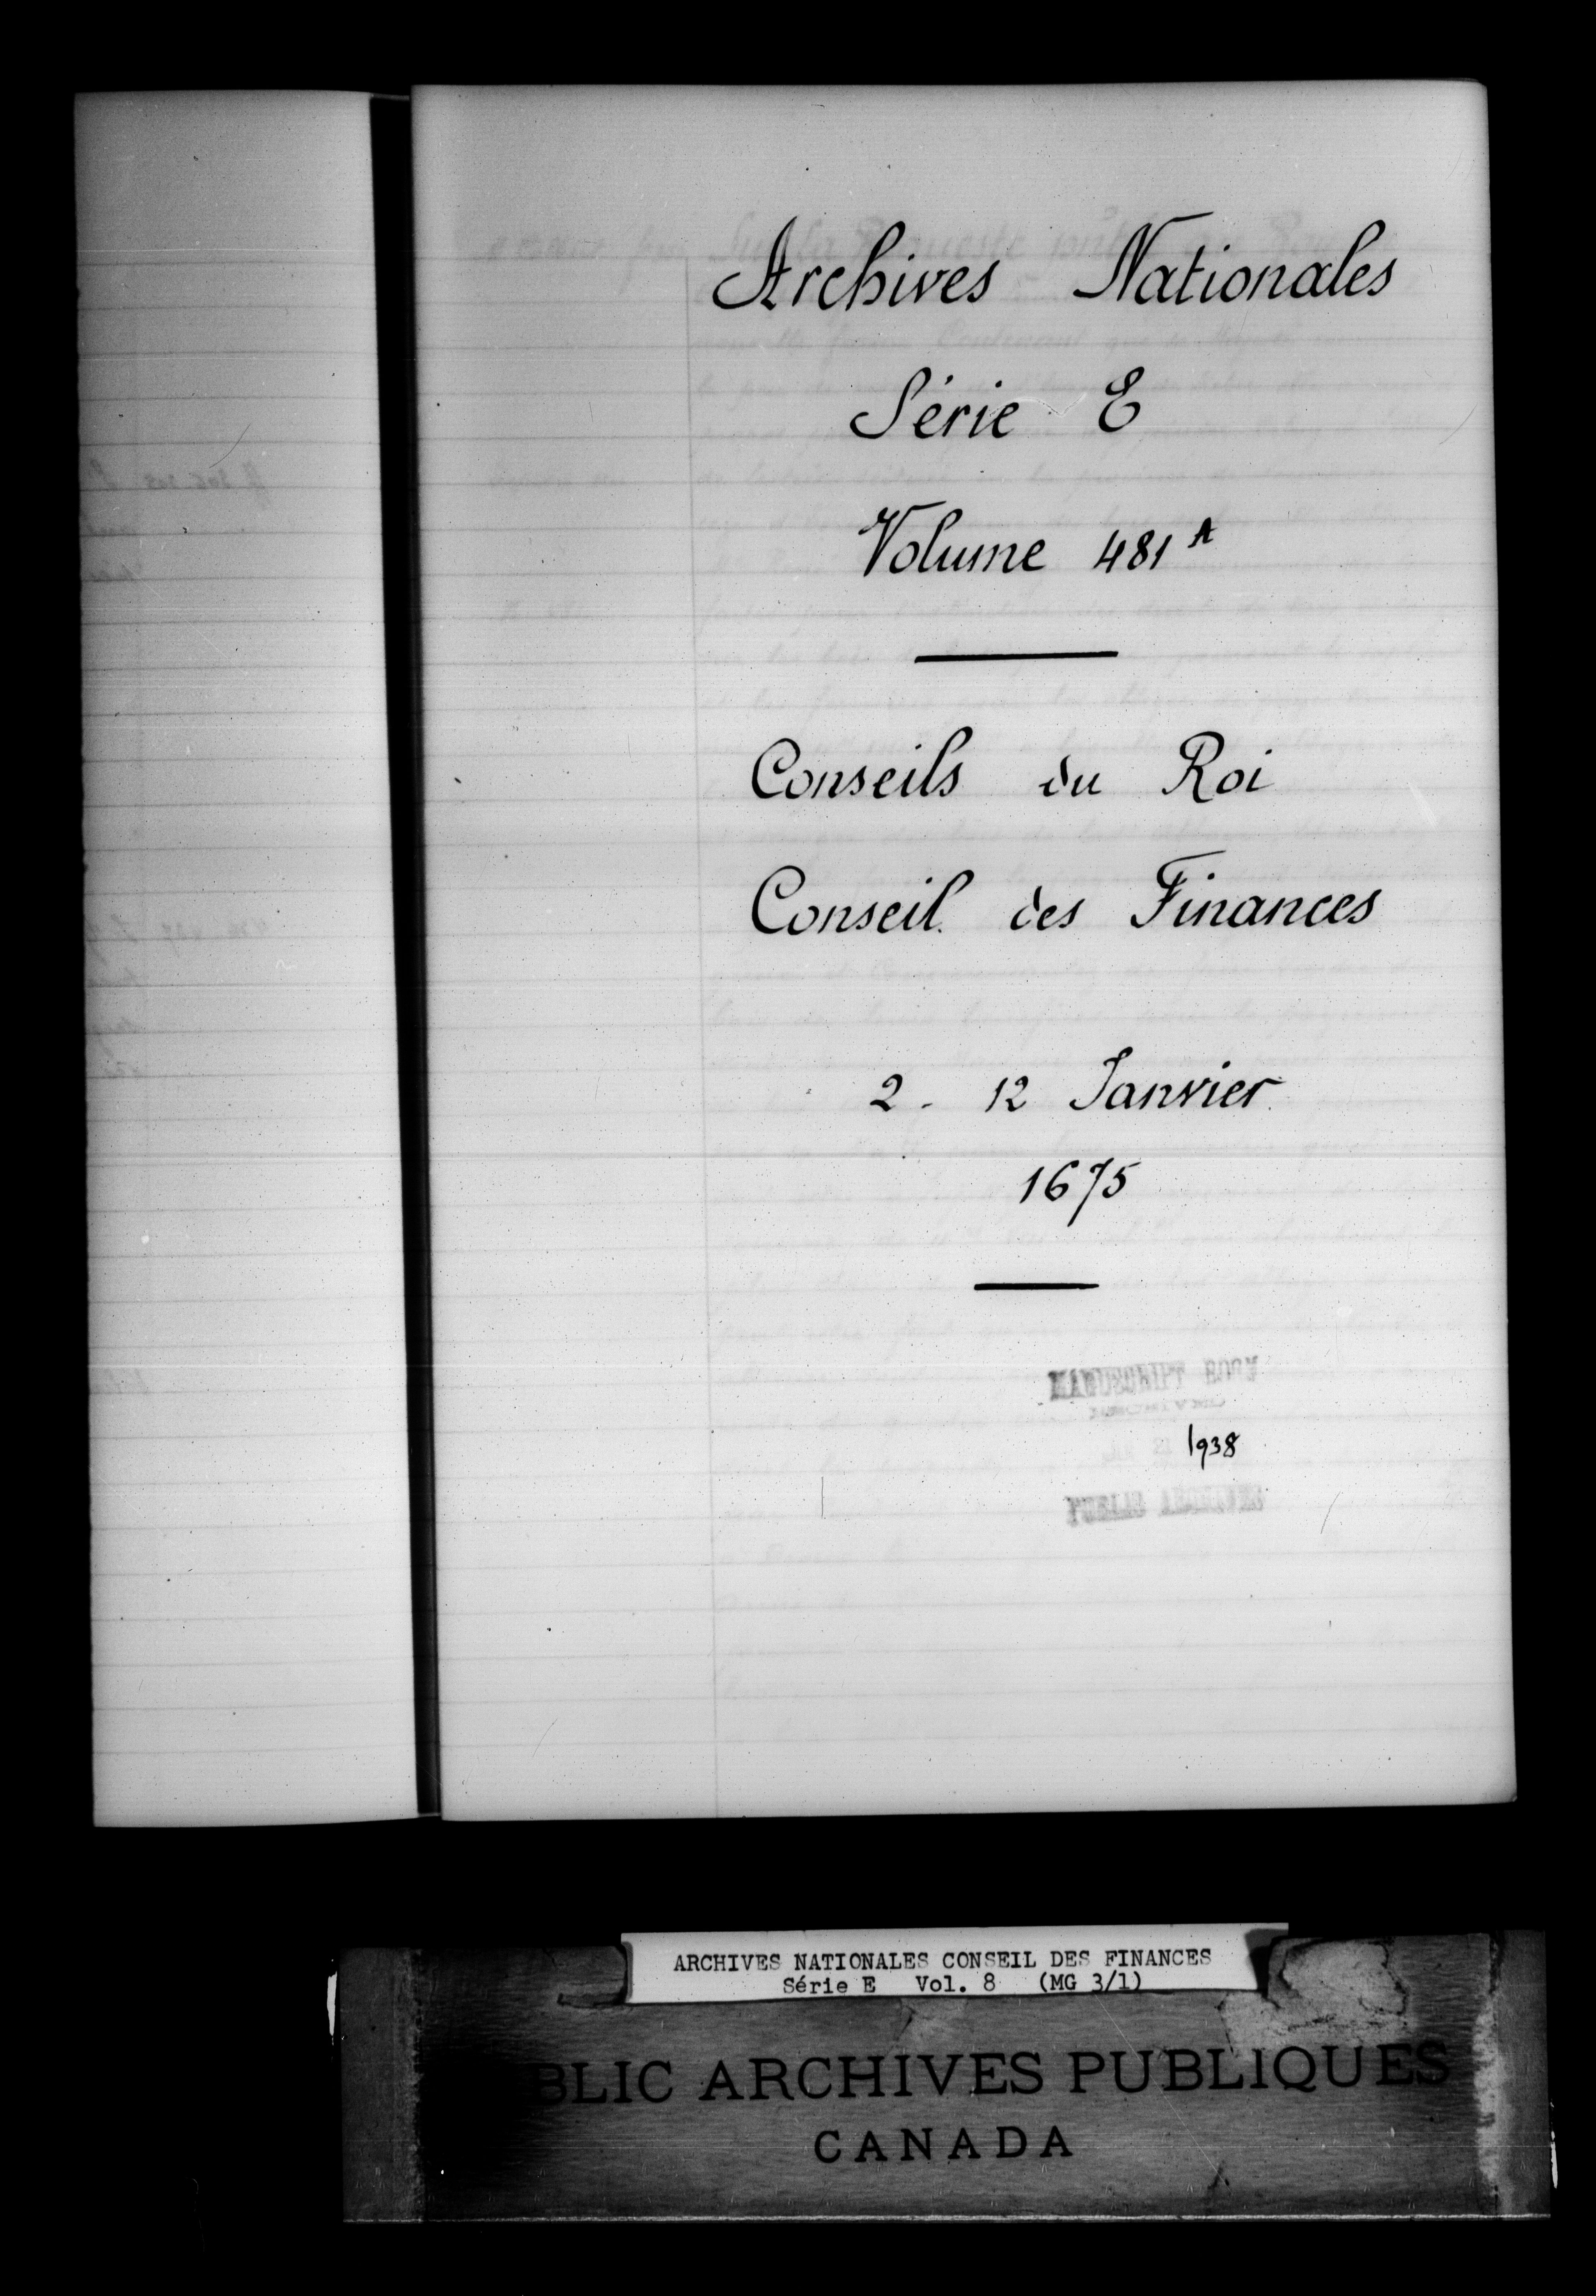 Archives Nationales
Série E
Volume 481 A
Conseils du Roi
Conseil des Finances
2 - 12 Janvier
1675
MANUSCRIPT ROOM
1938
PUBLIC ARCHIVES
ARCHIVES NATIONALES CONSEIL DES FINANCES
Série E Vol. 8 (MG 3/1)
BLIC ARCHIVES PUBLIQUES
CANADA